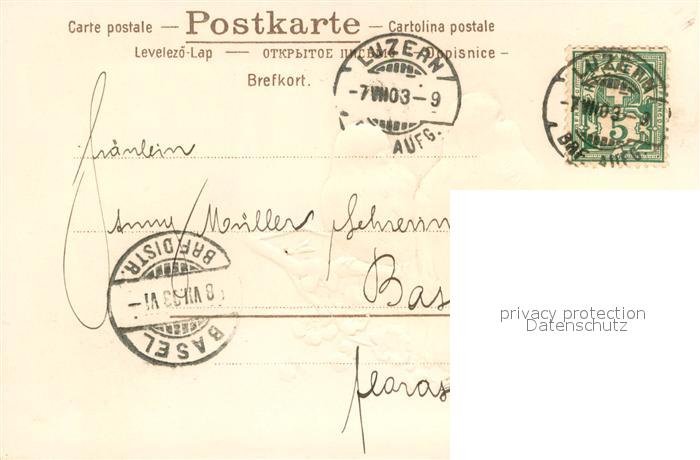 Carte postale — Postkarte — Cartolina postale
Levelező-Lap — ОТКРЫТОЕ ПИСЬМО — Dopisnice —
Brefkort.
LUZERN
-7 VII 03 - 9
AUFG.
LUZERN
-7 VII 03 - 9
5
Fräulein
Anny Müller
Bas
BRF. DISTR.
8 VII 03 VI-
BASEL
privacy protection
Datenschutz